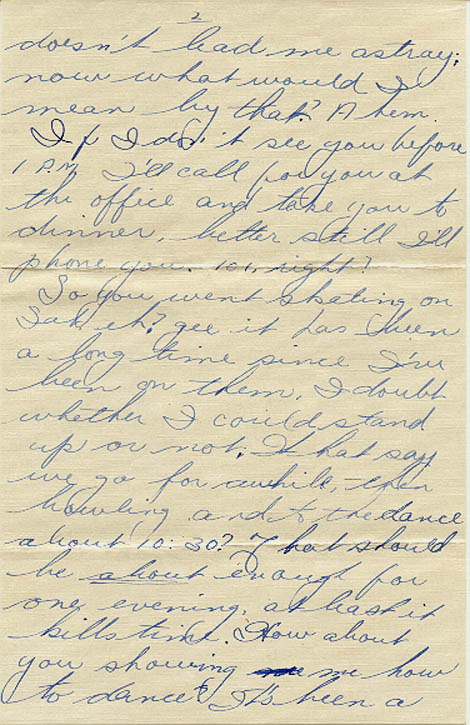 2
doesn't lead me astray;
now what would I
mean by that? Ahem.
If I don't see you before
1 P.M. I'll call for you at
the office and take you to
dinner, better still I'll
phone you. 101, right?
So you went skating on
Sat. eh? gee it has been
a long time since I've
been on them, I doubt
whether I could stand
up or not. What say
we go for awhile, then
bowling and to the dance
about 10:30? That should
be about enough for
one evening, at least it
kills time. How about
you showing me how
to dance? It's been a